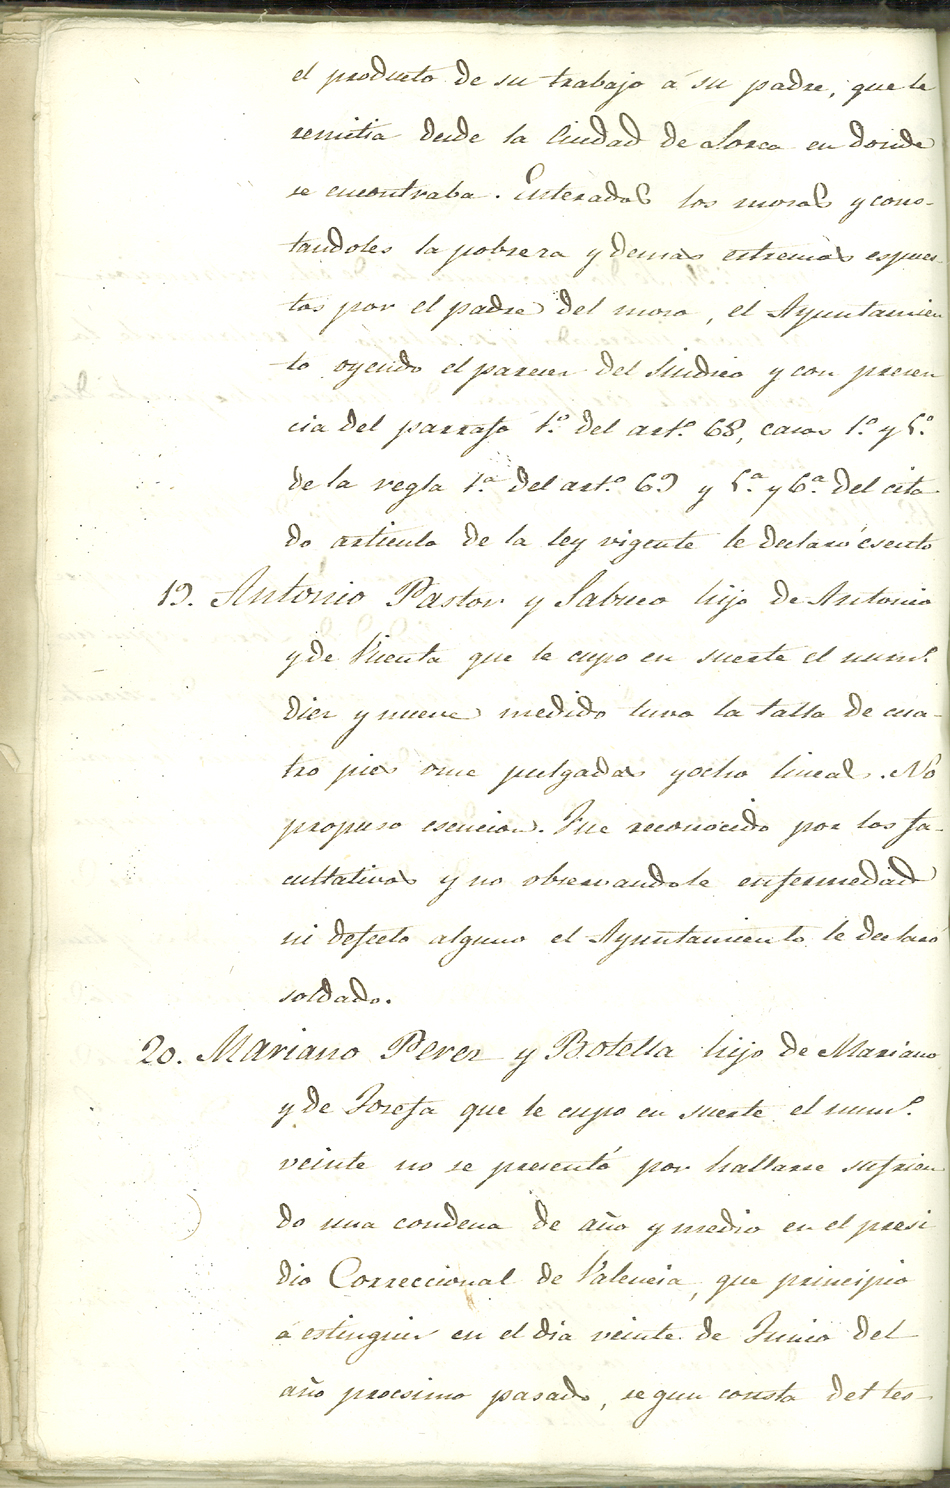 el producto de su trabajo á su padre, que le
remitia desde la Ciudad de Lorca en donde
se encontraba. Enterados los mozos y cons-
tandoles la pobreza y demas estremos espues-
tos por el padre del mozo, el Ayuntamien
to oyendo el parecer del Sindico y con presen
cia del parrafo 1.º del art.º 68, casos 1.º y 5.º
de la regla 1.ª del art.º 69 y 5.ª y 6.ª del cita
do articulo de la ley vigente le declaró esento
19. Antonio Pastor y Sabuco hijo de Antonio
y de Vicenta que le cupo en suerte el num.º
diez y nueve medido tuvo la talla de cua-
tro pies once pulgadas y ocho lineas. No
propuso esencion. Fue reconocido por los fa-
cultativos y no observandole enfermedad
ni defecto alguno el Ayuntamiento le declaró
soldado.
20. Mariano Perez y Botella hijo de Mariano
y de Josefa que le cupo en suerte el num.º
veinte no se presentó por hallarse sufrien
do una condena de año y medio en el presi
dio Correccional de Valencia, que principio
á estinguir en el dia veinte de Junio del
año procsimo pasado, segun consta del tes-